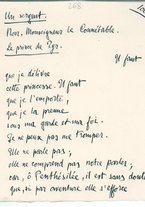 268
Un sergent.
Non. Monseigneur le Connétable.
Le prince de Tyr.
Il faut
que je délivre
cette princesse. Il faut
que je l'emporte,
que je la prenne
sous ma garde et foi.
Je ne peux pas me tromper.
Elle ne parle pas,
elle ne comprend pas notre parler,
car, ô Penthésilée, il est sans doute
que, si par aventure elle s'efforce